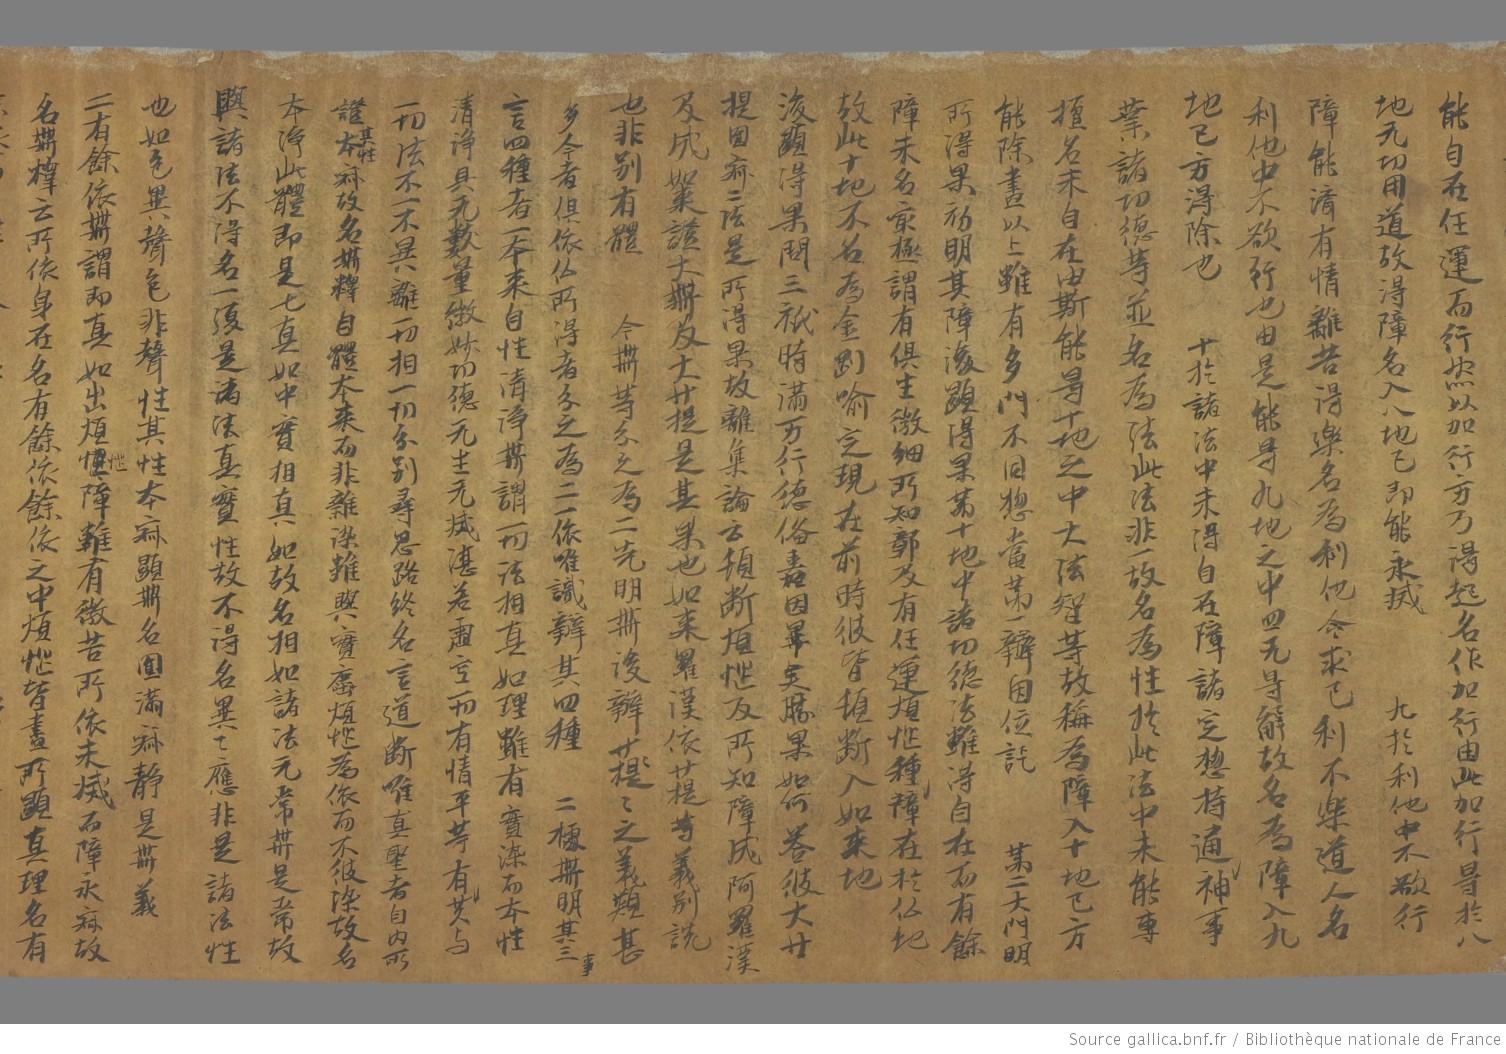 能自在任運而行然以加行方乃得起名作加行由此加行㝵於八
地无功用道故得障名入八地已即能永滅　九於利他中不欲行
障能濟有情離苦得樂名為利他今求已利不樂道人名
利他中不欲行也由是能㝵九地之中四无㝵解故名為障入九
地已方得除也　十於諸法中未得自在障諸定惣持通神事
業諸功德等並名為法此法非一故名為性於此法中未能專
擅名未自在由斯能㝵十地之中大法智等故稱為障入十地已方
能除盡以上雖有多門不同惣當第一辯因位訖　第二大門明
所得果初明其障後顯得果第十地中諸功德法雖得自在而有餘
障未名㝡極謂有俱生微細所知鄣及有任運煩惱種障在於仏地
故此十地不名為金剛喻定現在前時彼皆頓断入如来地
後顯得果問三祇時滿万行德俻嘉因畢定勝果如何答彼大菩
提圓寂二法是所得果故離集論云頓断煩惱及所知障成阿羅漢
及成如来證大涅槃及大菩提是其果也如来羅漢依菩提等義別說
也非別有體　今涅槃等分之為二先明涅槃後辯菩提々之義類甚
多今者俱依仏所得者分之為二一依唯識辯其四種　二涅槃明其三事
言四種者一本来自性清淨涅槃謂一切法相真如理雖有客染而本性
清淨具无數量微妙功德无生无滅湛若虛空一切有情平等共有与
一切法不一不異離一切相一切分別尋思路絕名言道断唯真聖者自內所
證其性本寂故名涅槃釋自體本来而非雜染雖與實爲煩惱為依而不彼染故名
本淨此體即是七真如中實相真如故名相如諸法元常涅槃是常故
與諸法不得名一復是諸法真實性故不得名異々應非是諸法性
也如色異聲色非聲性其性本寂顯涅槃名圓滿寂靜是涅槃義
二有餘依涅槃謂即真如出煩惱障雖有微苦所依未滅而障永寂故
名涅槃釋云所依身在名有餘依餘依之中煩惱皆盡所顯真理名有